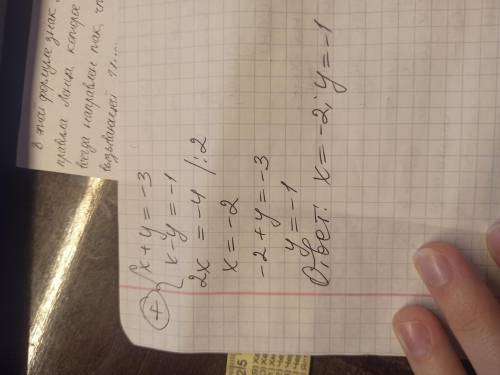 в этой формуле знак
правила Ленца, которое
всегда направлен так, чт
(+) { x + y = -3
x - y = -1
2x = -4 /:2
x = -2
-2 + y = -3
y = -1
Ответ: x = -2; y = -1